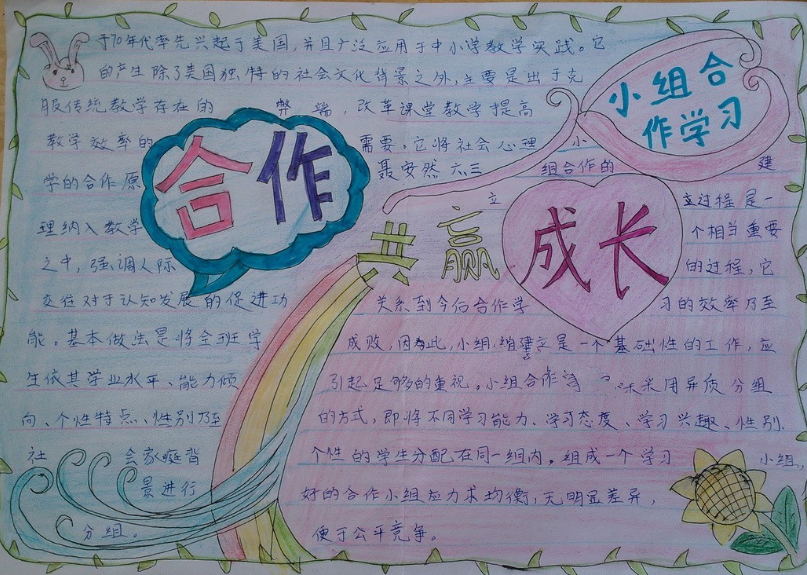 于70年代率先兴起于美国，并且广泛应用于中小学教学实践。它
的产生除了美国独特的社会文化背景之外，主要是出于克
服传统教学存在的 弊端，改革课堂教学提高
教学效率的 需要。它将社会心理
学的合作原
理纳入教学
之中，强调人际
交往对于认知发展的促进功
能。基本做法是将全班学
生依其学业水平、能力倾
向、个性特点、性别乃至
社会家庭背
景进行
分组。
合作
共赢
成长
小组合
作学习
聂安然 六三
小组合作的建
立过程是一
个相当重要
的过程，它
关系到今后合作学习的效率乃至
成败，因此，小组组建是一个基础性的工作，应
引起足够的重视。小组合作 采用异质分组
的方式，即将不同学习能力、学习态度、学习兴趣、性别、
个性的学生分配在同一组内。组成一个学习小组，
好的合作小组应力求均衡，无明显差异，
便于公平竞争。